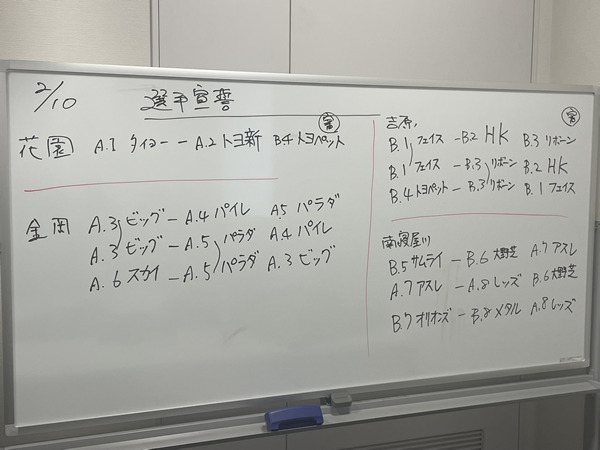 2/10 選手宣誓
花園 A.1 タイヨー ー A.2 トヨ新 B4 トヨペット
金岡 A.3 ビッグ ー A.4 パイレ A5 パラダ
A.3 ビッグ ー A.5 パラダ A.4 パイレ
A.6 スカイ ー A.5 パラダ A.3 ビッグ
吉原
B.1 フェイス ー B.2 HK B.3 リボーン
B.1 フェイス ー B.3 リボーン B.2 HK
B.4 トヨペット ー B.3 リボーン B.1 フェイス
南寝屋川
B.5 サムライ ー B.6 大野芝 A.7 アスレ
A.7 アスレ ー A.8 レッズ B.6 大野芝
B.7 オリオンズ ー B.8 メタル A.8 レッズ